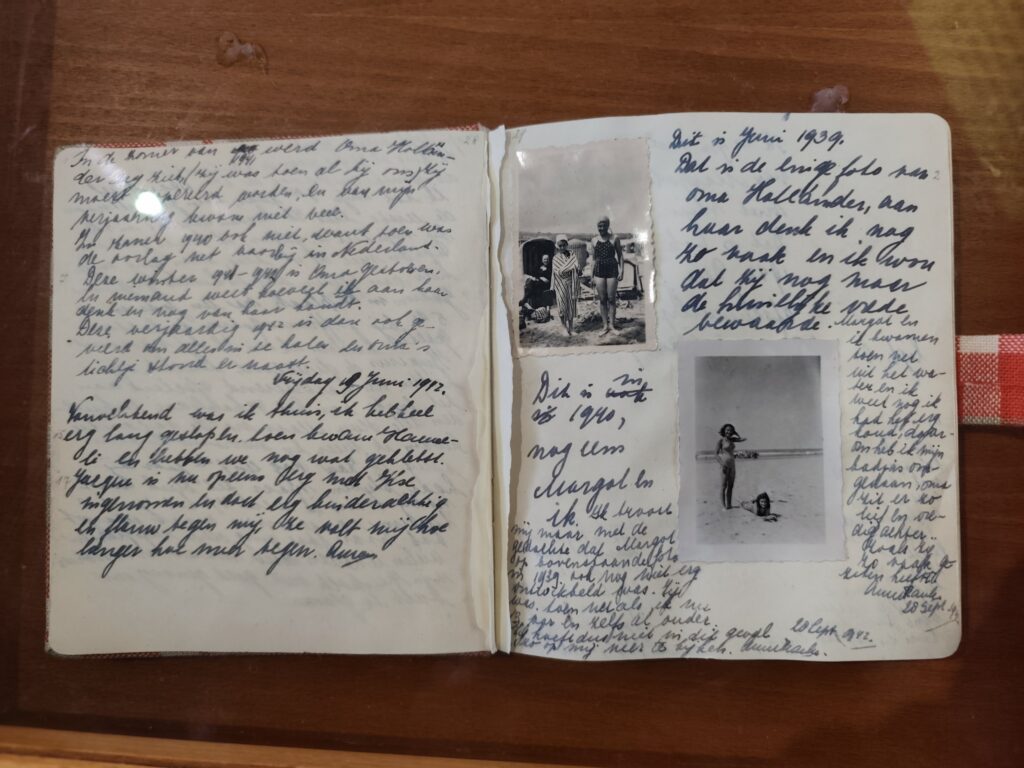 In de zomer van 1941 werd Oma Hollän-
der erg ziek, (zij was toen al bij ons) zij
moest geopereerd worden, en van mijn
verjaardag kwam niet veel.
In zomer 1940 ook niet, want toen was
de oorlog net voorbij in Nederland.
Deze winter 1941-1942 is Oma gestorven.
En niemand weet hoeveel ik aan haar
denk en nog van haar houdt.
Deze verjaardag 1942 is dan ook ge-
vierd om alles in te halen en oma's
lichtje stond er naast.
Vrijdag 19 Juni 1942.
Vanochtend was ik thuis, ik heb heel
erg lang geslapen, toen kwam Hanne-
li en hebben we nog wat gekletst.
Jacque is nu opeens erg met Ilse
ingenomen en doet erg kinderachtig
en flauw tegen mij, ze valt mij hoe
langer hoe meer tegen. Anne
Dit is Juni 1939.
Dat is de enige foto van
oma Hollander, aan
haar denk ik nog
zo vaak en ik wou
dat zij nog maar
de huiselijke vrede
bewaarde.
Margot en
ik kwamen
toen net
uit het wa-
ter en ik
weet nog ik
had het erg
koud, daar-
om heb ik mijn
badjas om-
gedaan, oma
zit er zo
lief en vre-
dig achter.
Zoals zij
zo vaak ge-
zeten heeft.
Anne Frank.
28 Sept. 1942
Dit is in
1940,
nog eens
Margot en
ik. Ik troost
mij maar met de
gedachte dat Margot
op bovenstaande foto
in 1939 ook nog niet erg
ontwikkeld was. Zij
was toen net als ik nu
13 jaar en zelfs al ouder
hoeft dus niet in dit geval
op mij neer te kijken. Anne Frank.
28 Sept. 1942.